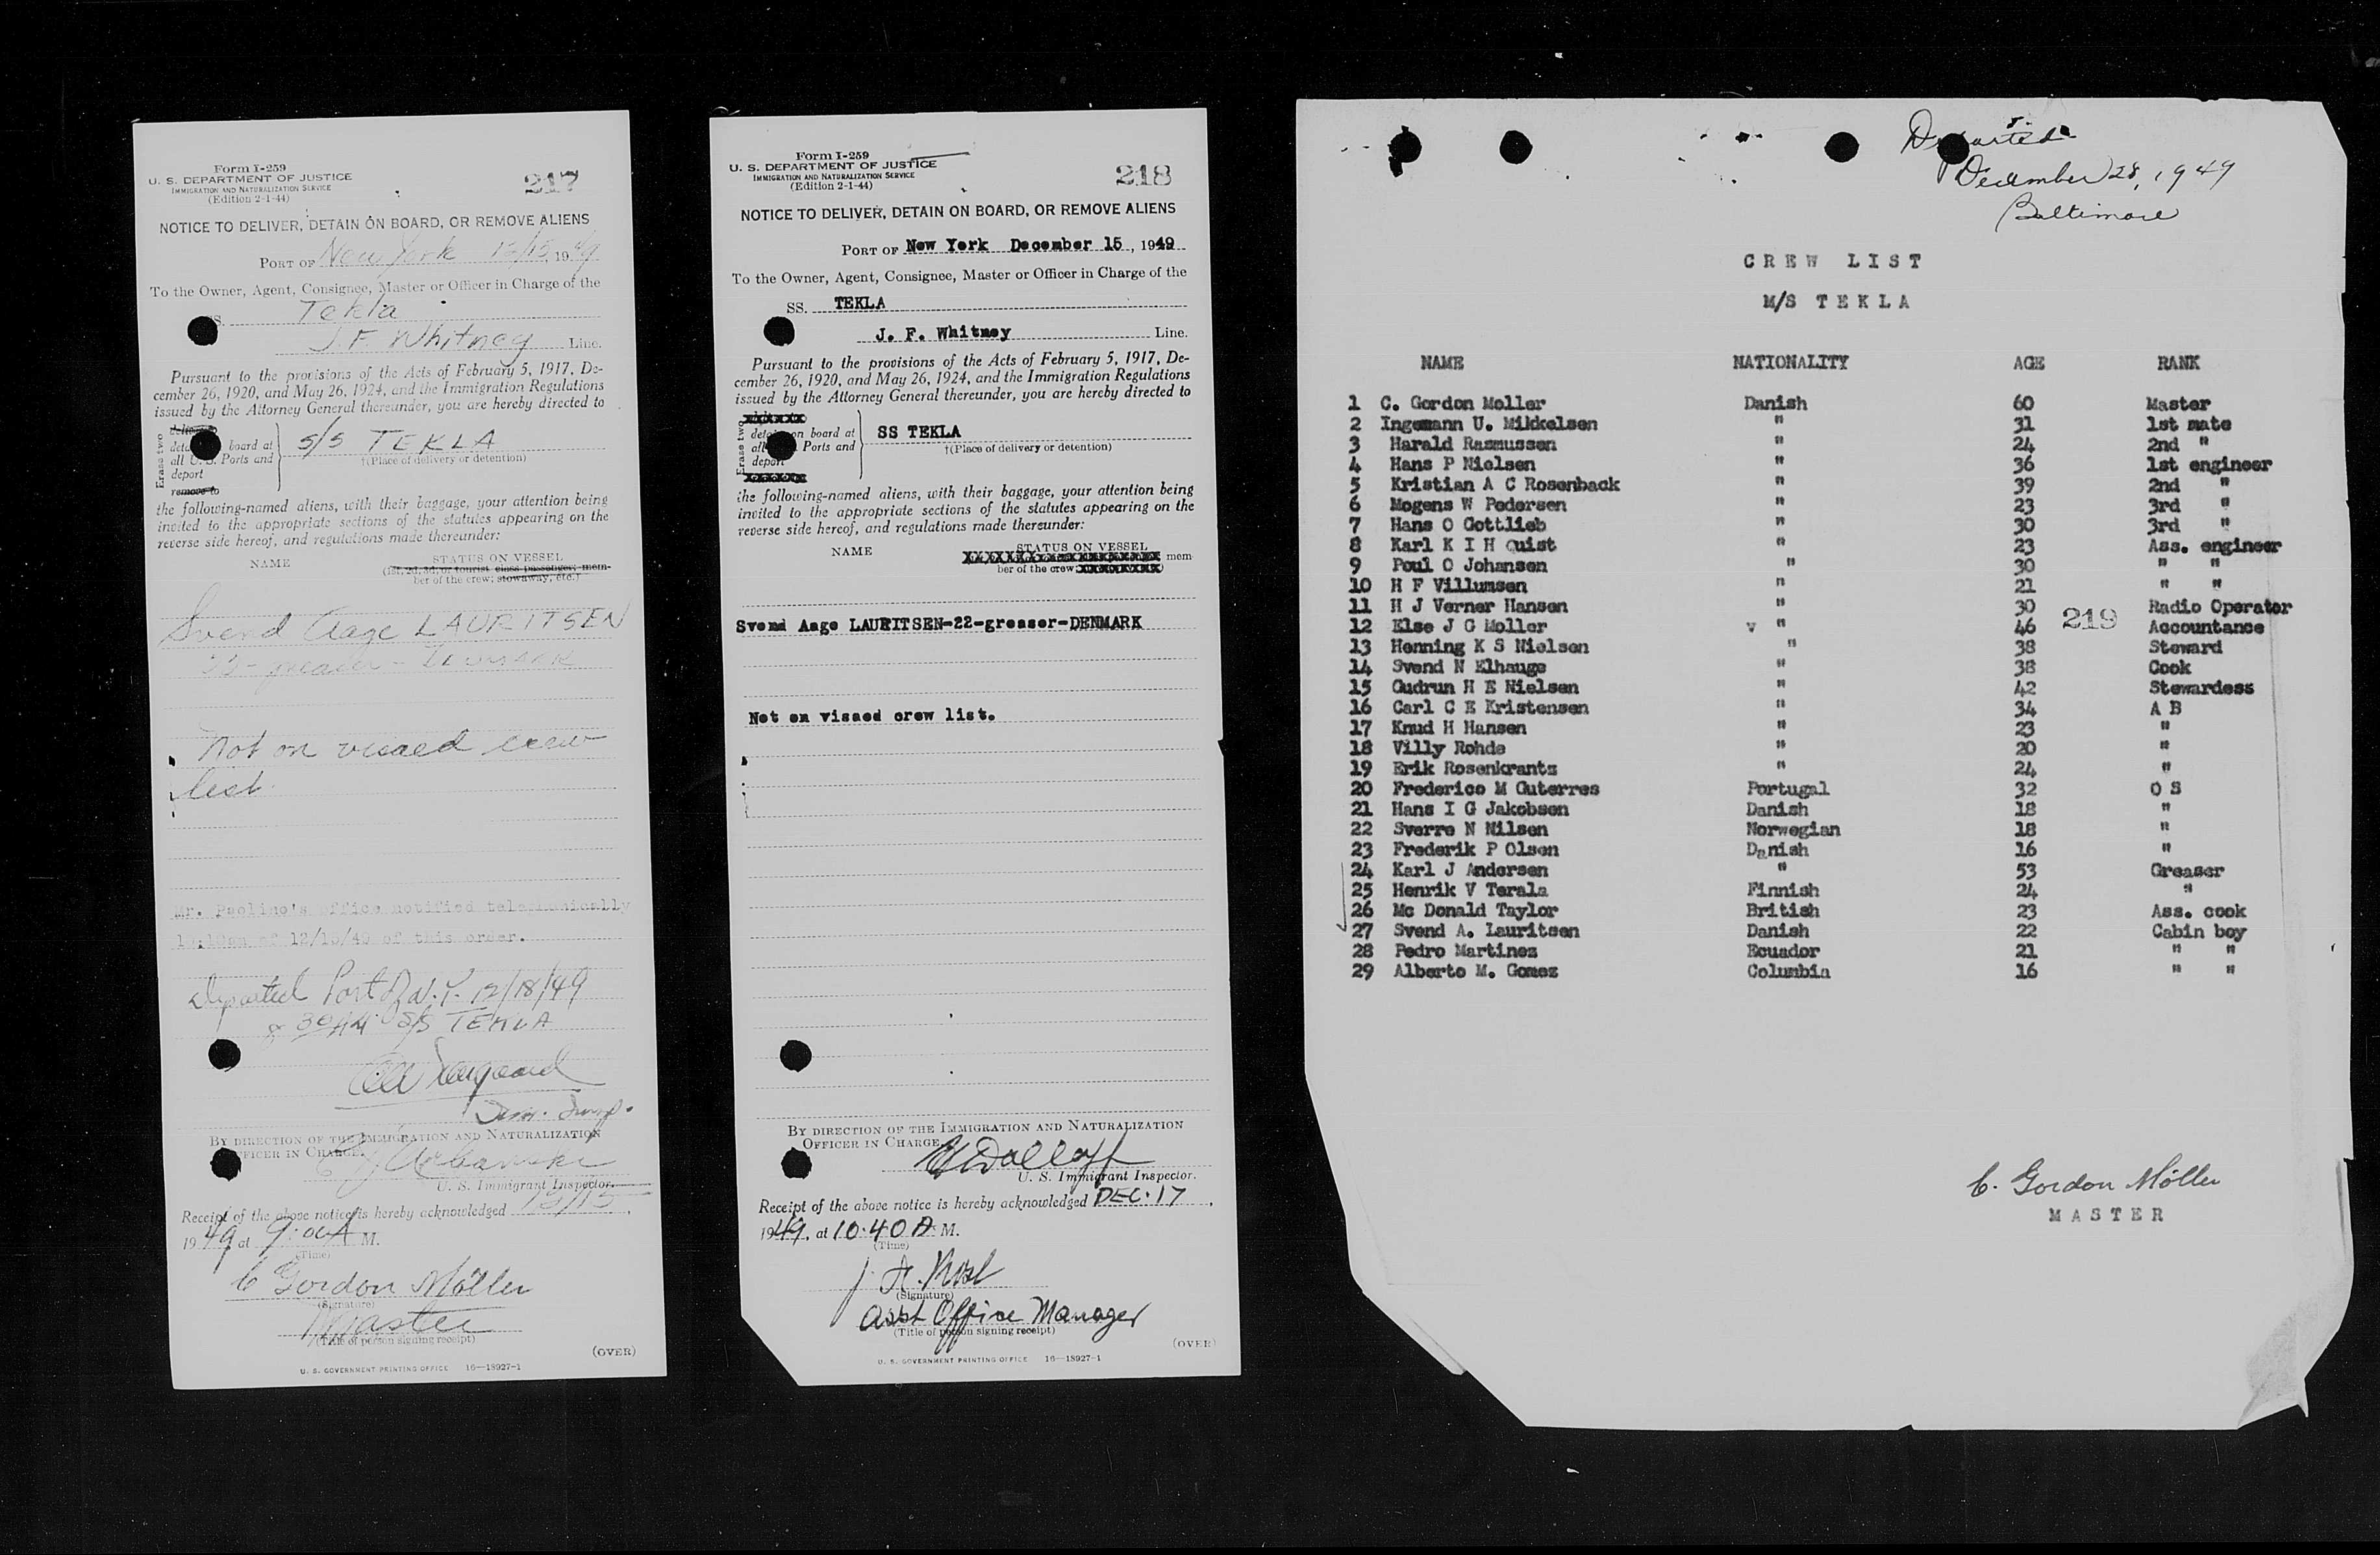 Form I-259
U. S. DEPARTMENT OF JUSTICE
IMMIGRATION AND NATURALIZATION SERVICE
(Edition 2-1-44)
217
NOTICE TO DELIVER, DETAIN ON BOARD, OR REMOVE ALIENS
PORT OF New York 12/15, 1949
To the Owner, Agent, Consignee, Master or Officer in Charge of the
SS. Tekla
J. F. Whitney Line.
Pursuant to the provisions of the Acts of February 5, 1917, De-
cember 26, 1920, and May 26, 1924, and the Immigration Regulations
issued by the Attorney General thereunder, you are hereby directed to
Erase two
deliver to
board at
all U.S. Ports and
deport
remove to
S/S TEKLA
†(Place of delivery or detention)
the following-named aliens, with their baggage, your attention being
invited to the appropriate sections of the statutes appearing on the
reverse side hereof, and regulations made thereunder:
NAME
STATUS ON VESSEL
(1st, 2d, 3d, or tourist class passenger; mem-
ber of the crew; stowaway, etc.)
Svend Aage LAURITSEN
22 - greaser - DENMARK
Not on visaed crew
list.
Mr. Paolino's office notified telephonically
of 12/15/49 of this order.
Departed Port of N.Y. 12/18/49
30 AM S/S TEKLA
BY DIRECTION OF THE IMMIGRATION AND NATURALIZATION
OFFICER IN CHARGE.
U. S. Immigrant Inspector.
Receipt of the above notice is hereby acknowledged 12/15,
1949 at 9:00 A M.
(Time)
C Gordon Möller
(Signature)
Master
(Title of person signing receipt)
(OVER)
U. S. GOVERNMENT PRINTING OFFICE 16—18927-1
Form I-259
U. S. DEPARTMENT OF JUSTICE
IMMIGRATION AND NATURALIZATION SERVICE
(Edition 2-1-44)
218
NOTICE TO DELIVER, DETAIN ON BOARD, OR REMOVE ALIENS
PORT OF New York December 15, 1949
To the Owner, Agent, Consignee, Master or Officer in Charge of the
SS. TEKLA
J. F. Whitney Line.
Pursuant to the provisions of the Acts of February 5, 1917, De-
cember 26, 1920, and May 26, 1924, and the Immigration Regulations
issued by the Attorney General thereunder, you are hereby directed to
Erase two
on board at
Ports and
deport
SS TEKLA
†(Place of delivery or detention)
the following-named aliens, with their baggage, your attention being
invited to the appropriate sections of the statutes appearing on the
reverse side hereof, and regulations made thereunder:
NAME
STATUS ON VESSEL
mem-
ber of the crew
Svend Aage LAURITSEN-22-greaser-DENMARK
Not on visaed crew list.
BY DIRECTION OF THE IMMIGRATION AND NATURALIZATION
OFFICER IN CHARGE.
U. S. Immigrant Inspector.
Receipt of the above notice is hereby acknowledged DEC. 17,
1949, at 10.40 A. M.
(Time)
(Signature)
Asst Office Manager
(Title of person signing receipt)
(OVER)
U. S. GOVERNMENT PRINTING OFFICE 16—18927-1
Departed
December 28, 1949
Baltimore
CREW LIST
M/S TEKLA
NAME NATIONALITY AGE RANK
1 C. Gordon Moller Danish 60 Master
2 Ingemann U. Mikkelsen " 31 1st mate
3 Harald Rasmussen " 24 2nd "
4 Hans P Nielsen " 36 1st engineer
5 Kristian A C Rosenback " 39 2nd "
6 Mogens W Pedersen " 23 3rd "
7 Hans O Gottlieb " 30 3rd "
8 Karl K I H Quist " 23 Ass. engineer
9 Poul O Johansen " 30 " "
10 H F Villumsen " 21 " "
11 H J Verner Hansen " 30 Radio Operator
219
12 Else J G Moller v " 46 Accountance
13 Henning K S Nielsen " 38 Steward
14 Svend N Elhauge " 38 Cook
15 Gudrun H E Nielsen " 42 Stewardess
16 Carl C E Kristensen " 34 A B
17 Knud H Hansen " 23 "
18 Villy Rohde " 20 "
19 Erik Rosenkrantz " 24 "
20 Frederico M Guterres Portugal 32 O S
21 Hans I G Jakobsen Danish 18 "
22 Sverre N Nilsen Norwegian 18 "
23 Frederik P Olsen Danish 16 "
24 Karl J Andersen " 53 Greaser
25 Henrik V Terala Finnish 24 "
26 Mc Donald Taylor British 23 Ass. cook
27 Svend A. Lauritsen Danish 22 Cabin boy
28 Pedro Martinez Ecuador 21 " "
29 Alberto M. Gomez Columbia 16 " "
C. Gordon Möller
MASTER